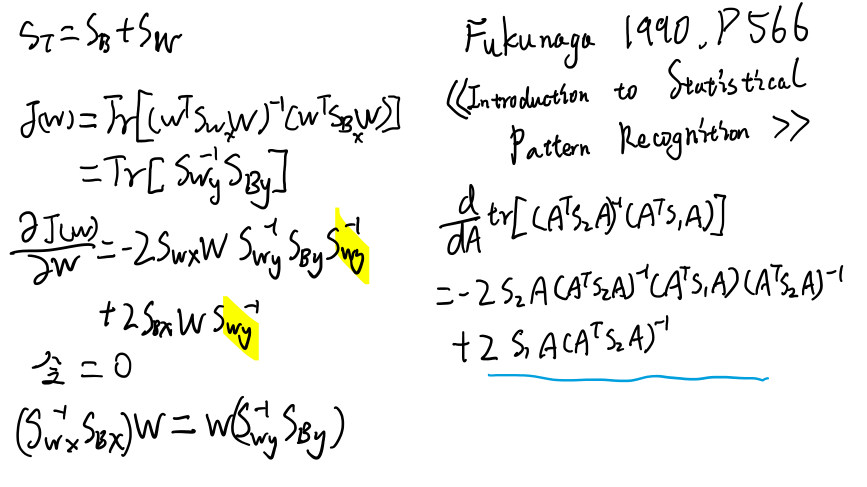 S_T = S_B + S_W
J(W) = Tr[(W^T S_{W_x} W)^{-1} (W^T S_{B_x} W)]
= Tr[S_{Wy}^{-1} S_{By}]
∂J(W)/∂W = -2 S_{Wx} W S_{Wy}^{-1} S_{By} S_{Wy}^{-1}
+ 2 S_{Bx} W S_{Wy}^{-1}
令 = 0
(S_{Wx}^{-1} S_{Bx}) W = W (S_{Wy}^{-1} S_{By})
Fukunaga 1990. P 566
《Introduction to Statistical
Pattern Recognition >>
d/dA tr[(A^T S_2 A)^{-1} (A^T S_1 A)]
= -2 S_2 A (A^T S_2 A)^{-1} (A^T S_1 A) (A^T S_2 A)^{-1}
+ 2 S_1 A (A^T S_2 A)^{-1}